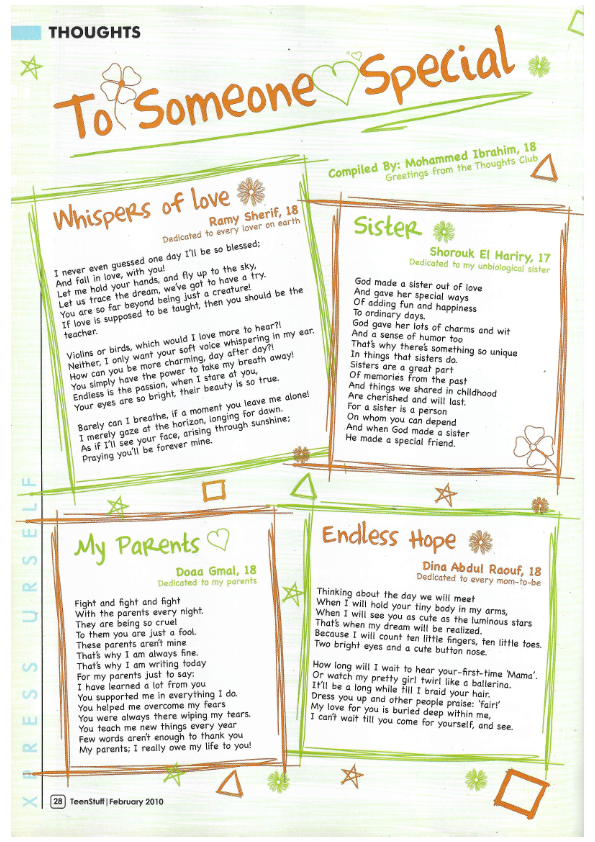 THOUGHTS
To Someone Special
Compiled By: Mohammed Ibrahim, 18
Greetings from the Thoughts Club
Whispers of love
Ramy Sherif, 18
Dedicated to every lover on earth
I never even guessed one day I'll be so blessed;
And fall in love, with you!
Let me hold your hands, and fly up to the sky,
Let us trace the dream, we've got to have a try.
You are so far beyond being just a creature!
If love is supposed to be taught, then you should be the
teacher.
Violins or birds, which would I love more to hear?!
Neither, I only want your soft voice whispering in my ear.
How can you be more charming, day after day?!
You simply have the power to take my breath away!
Endless is the passion, when I stare at you,
Your eyes are so bright, their beauty is so true.
Barely can I breathe, if a moment you leave me alone!
I merely gaze at the horizon, longing for dawn.
As if I'll see your face, arising through sunshine;
Praying you'll be forever mine.
Sister
Shorouk El Hariry, 17
Dedicated to my unbiological sister
God made a sister out of love
And gave her special ways
Of adding fun and happiness
To ordinary days.
God gave her lots of charms and wit
And a sense of humor too
That's why there's something so unique
In things that sisters do.
Sisters are a great part
Of memories from the past
And things we shared in childhood
Are cherished and will last.
For a sister is a person
On whom you can depend
And when God made a sister
He made a special friend.
My Parents
Doaa Gmal, 18
Dedicated to my parents
Fight and fight and fight
With the parents every night.
They are being so cruel
To them you are just a fool.
These parents aren't mine
That's why I am always fine.
That's why I am writing today
For my parents just to say:
I have learned a lot from you
You supported me in everything I do.
You helped me overcome my fears
You were always there wiping my tears.
You teach me new things every year
Few words aren't enough to thank you
My parents; I really owe my life to you!
Endless Hope
Dina Abdul Raouf, 18
Dedicated to every mom-to-be
Thinking about the day we will meet
When I will hold your tiny body in my arms,
When I will see you as cute as the luminous stars
That's when my dream will be realized.
Because I will count ten little fingers, ten little toes.
Two bright eyes and a cute button nose.
How long will I wait to hear your-first-time 'Mama'.
Or watch my pretty girl twirl like a ballerina.
It'll be a long while till I braid your hair.
Dress you up and other people praise: 'fair!'
My love for you is buried deep within me,
I can't wait till you come for yourself, and see.
XPRESS URSELF
28 TeenStuff | February 2010